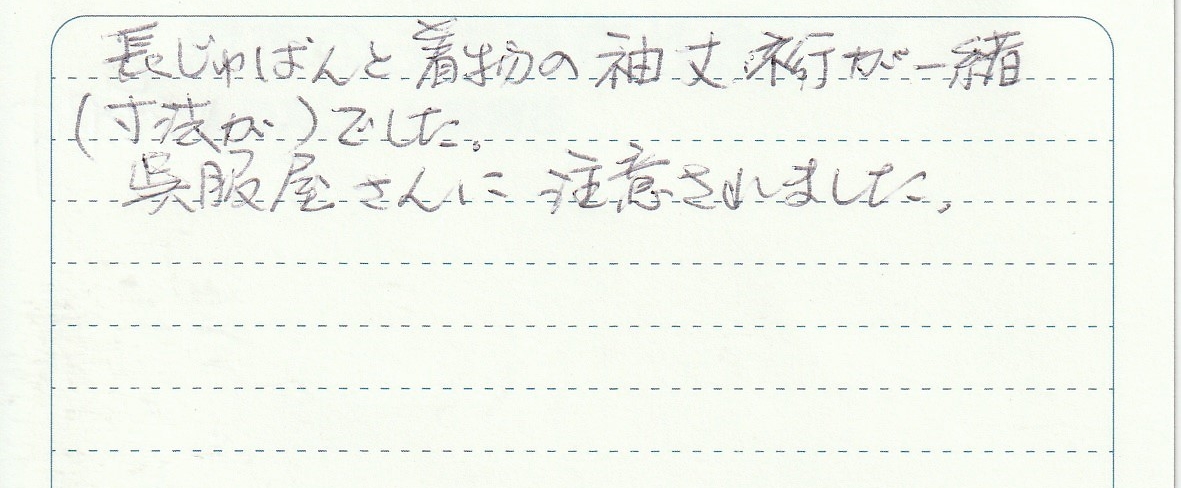 長じゅばんと着物の袖丈裄が一緒
(寸法が)でした。
呉服屋さんに注意されました。